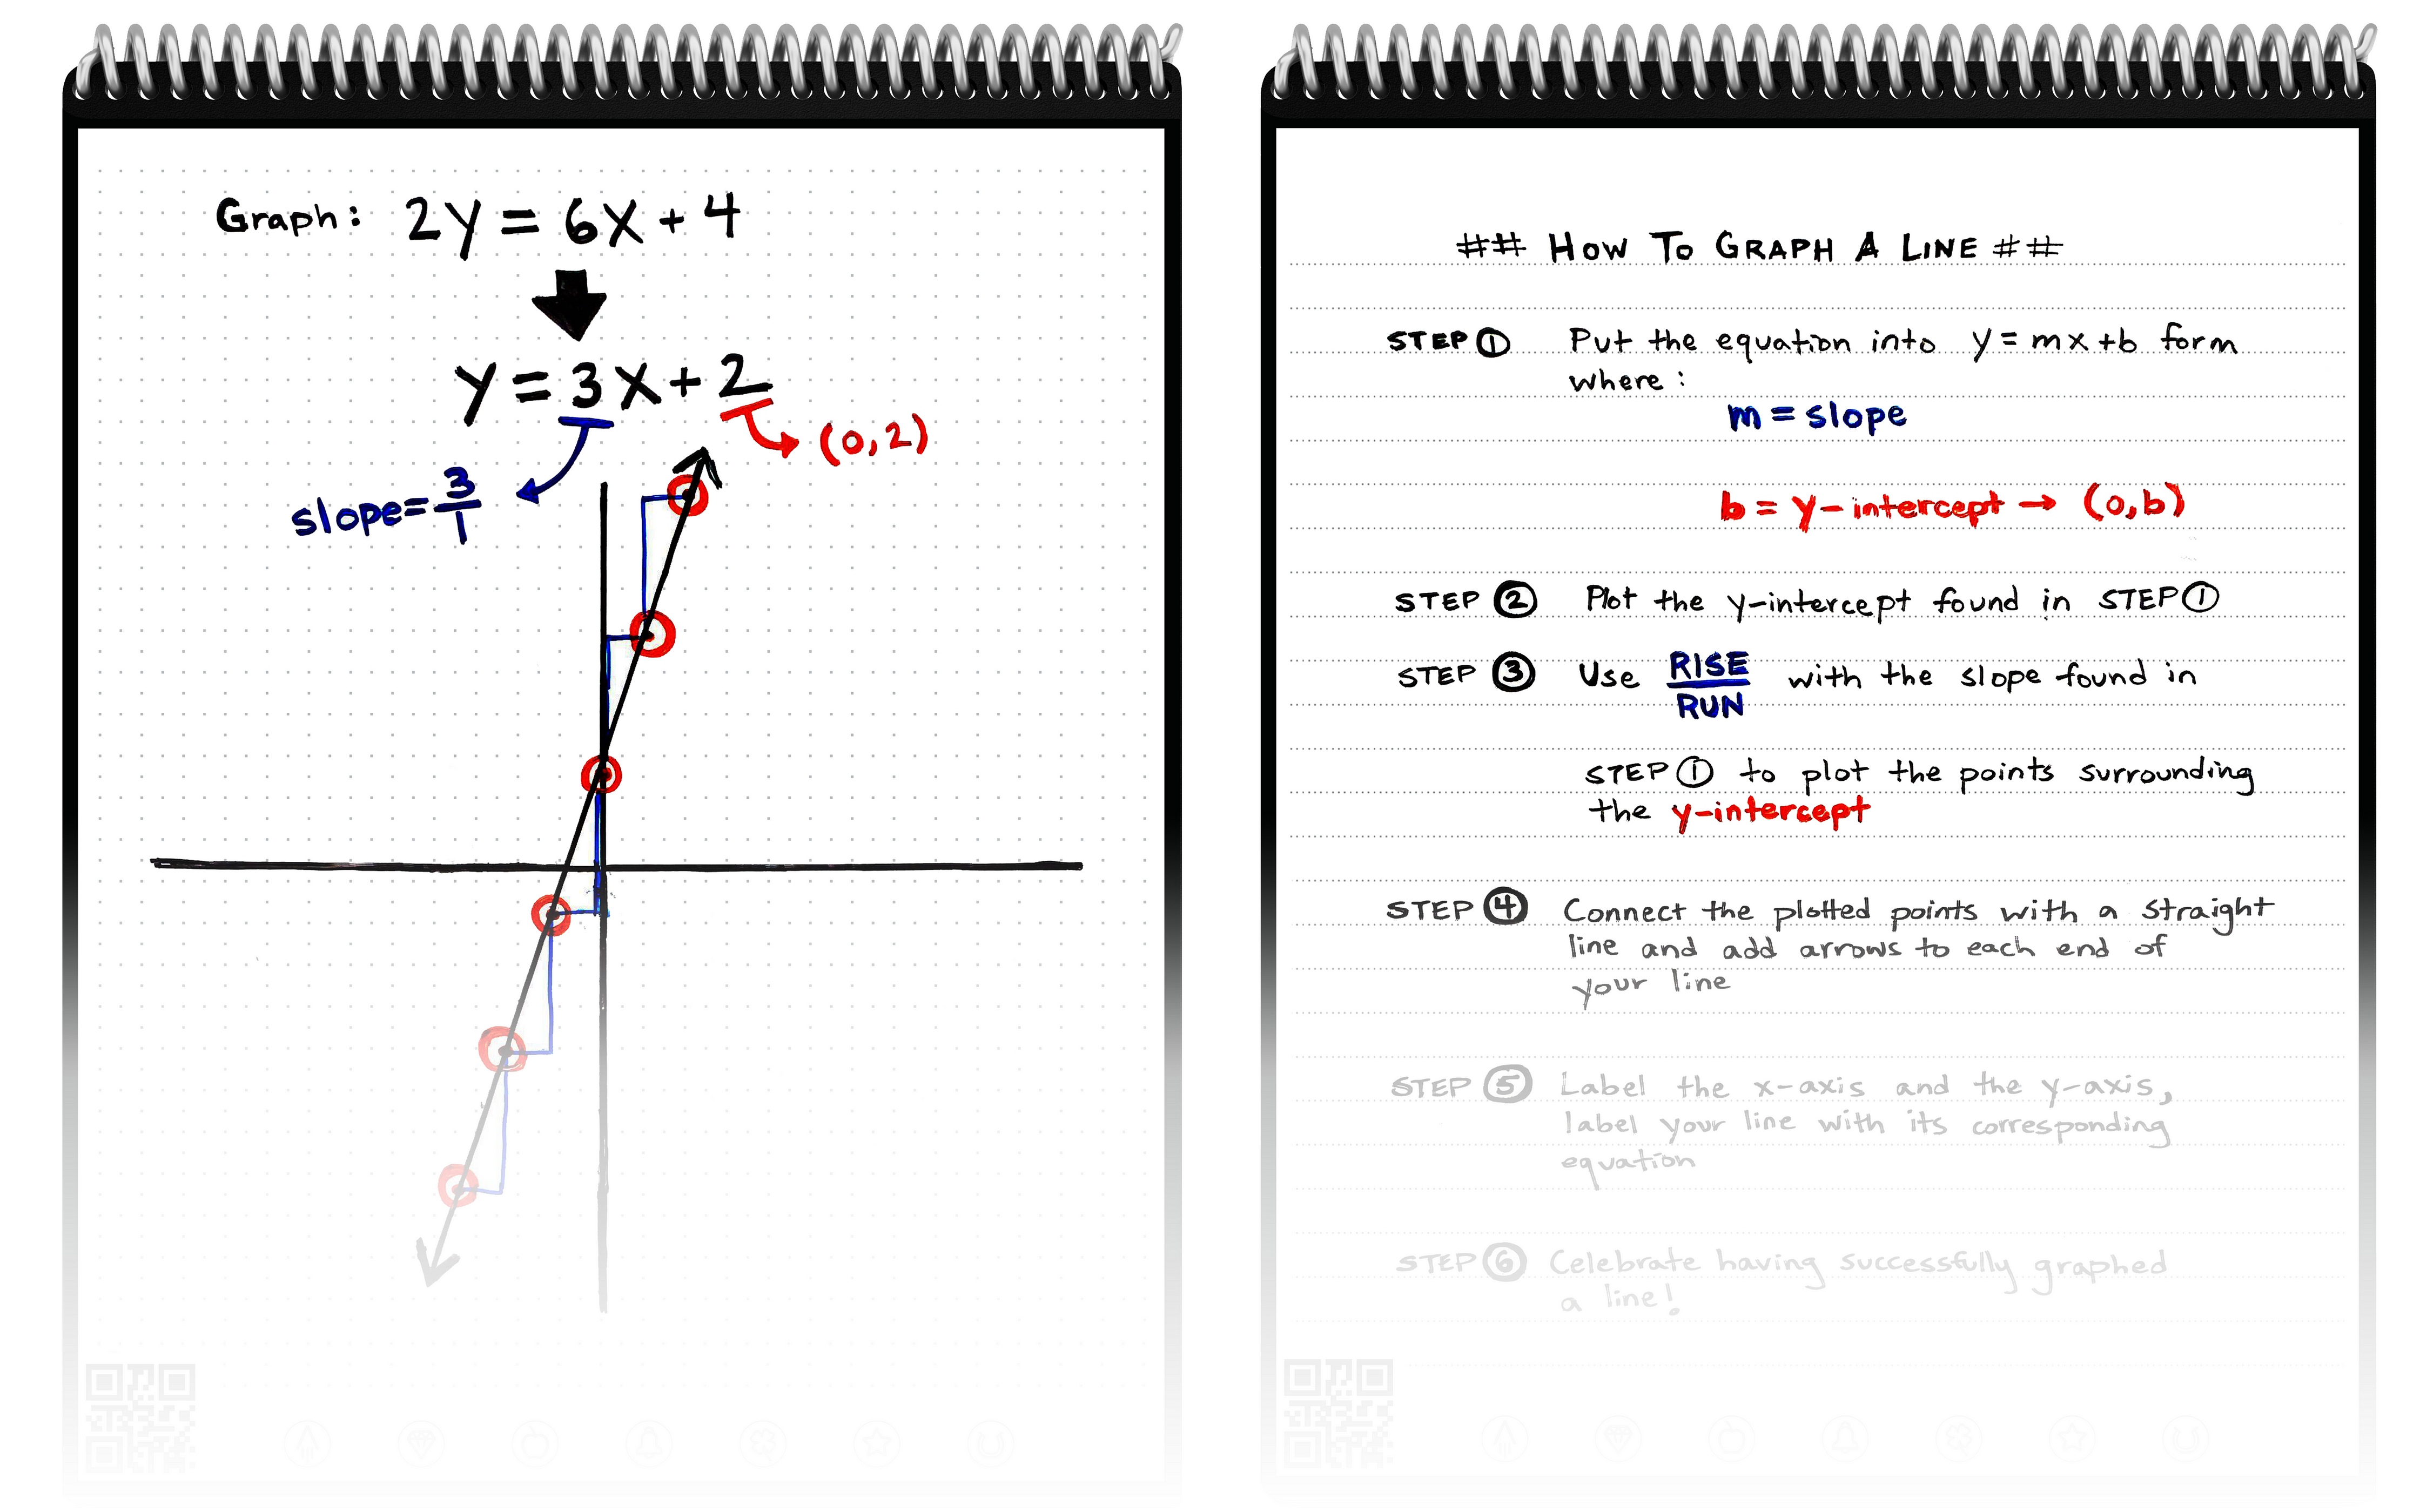 Graph: 2y = 6x + 4
y = 3x + 2
(0,2)
slope = 3/1
## HOW TO GRAPH A LINE ##
STEP ① Put the equation into y = mx + b form
where:
m = slope
b = y-intercept → (0,b)
STEP ② Plot the y-intercept found in STEP ①
STEP ③ Use RISE/RUN with the slope found in
STEP ① to plot the points surrounding
the y-intercept
STEP ④ Connect the plotted points with a straight
line and add arrows to each end of
your line
STEP ⑤ Label the x-axis and the y-axis,
label your line with its corresponding
equation
STEP ⑥ Celebrate having successfully graphed
a line!